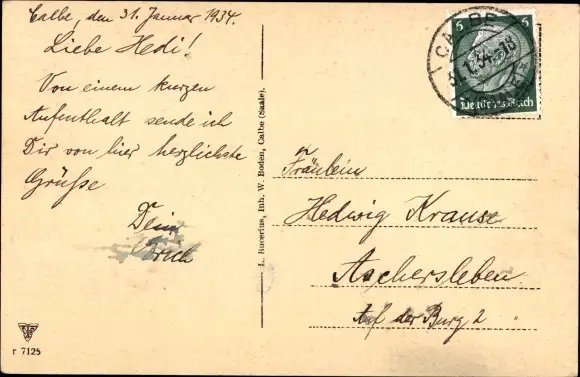 Calbe, den 31. Januar 1934.
Liebe Hedi!
Von einem kurzen
Aufenthalt sende ich
Dir von hier herzlichste
Grüße
Dein
Erich
r 7125
L. Bucerius, Inh. W. Boden, Calbe (Saale).
6 6
Deutsches Reich
CALBE
34-18
Fräulein
Hedwig Krause
Aschersleben
Auf der Burg 2